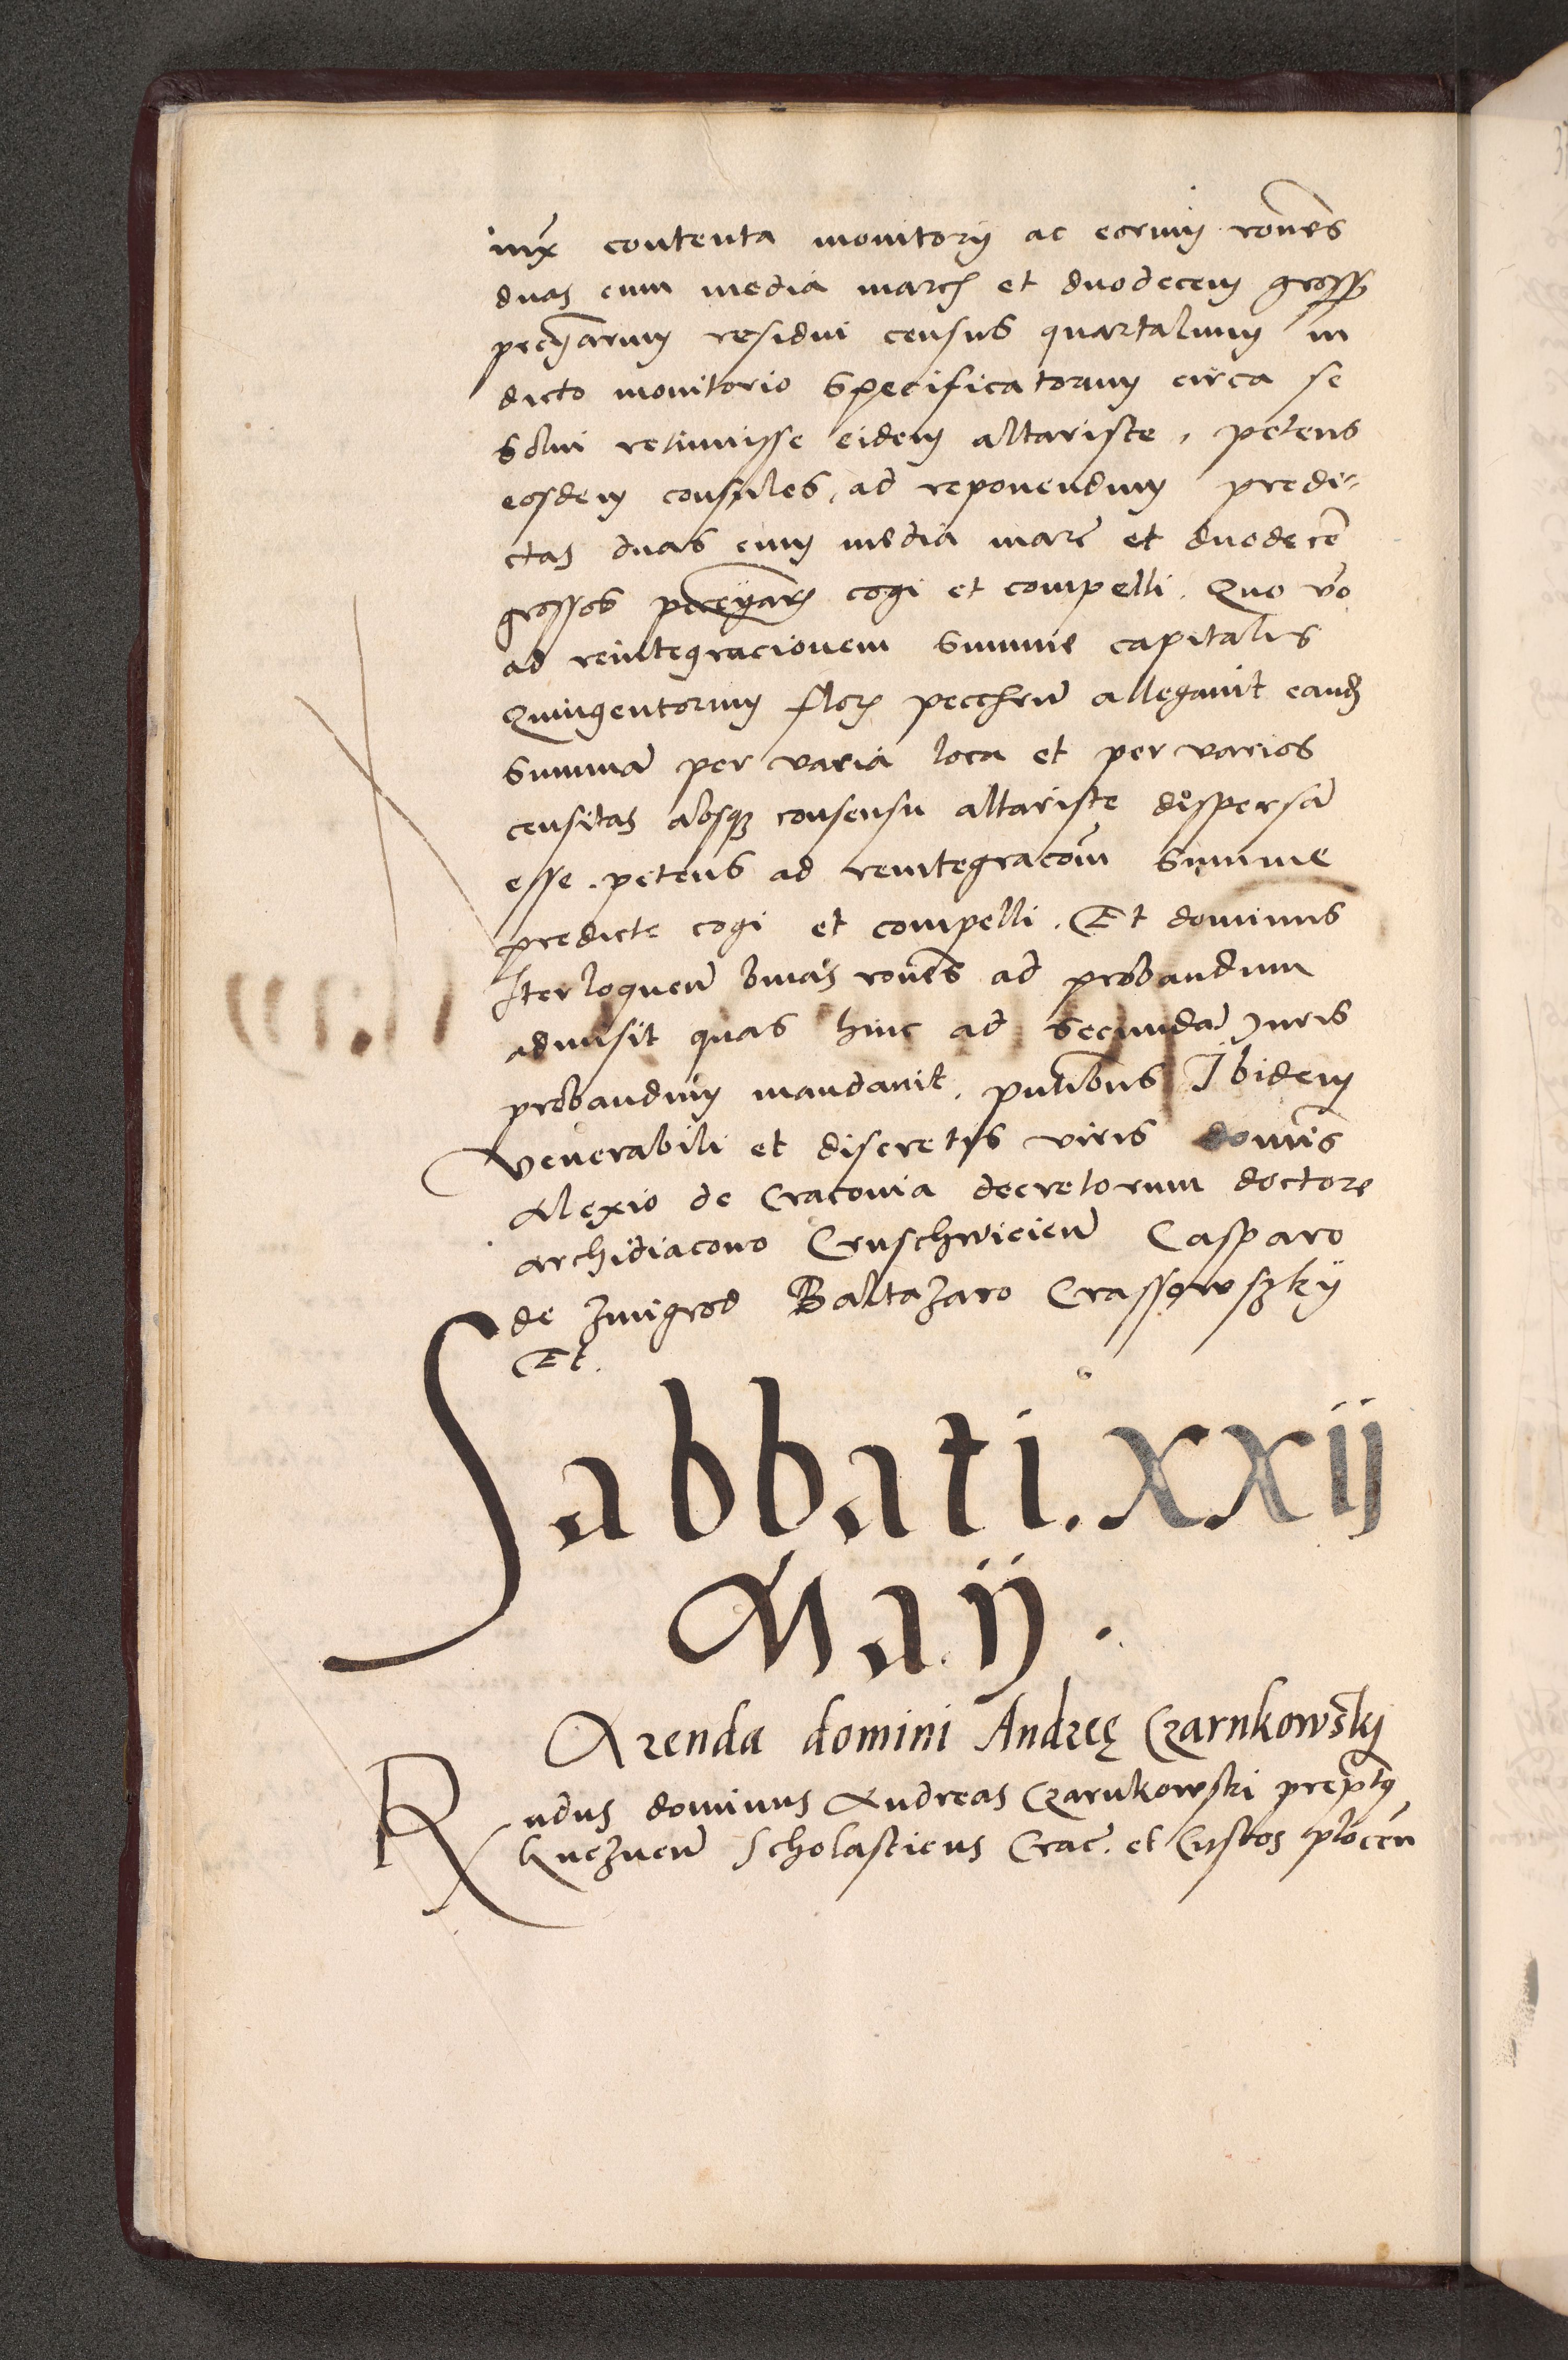 iux contenta monitorij ac eorum rones
duas cum media march et duodecem gross
pecuniarum residui census quartalium in
dicto monitorio specificatorum circa se
solvi retinuisse eidem altariste, petens
eosdem consules, ad reponendum predi-
ctas duas cum media marc et duodecem
grossos cogi et compelli. Quo vo
ad reintegracionem summe capitalis
Quingentorum flor alleganit eand
summa per varia loca et per varios
censitas absq consensu altariste dispersa
esse. petens ad reintegracom summe
predicte cogi et compelli. Et dominus
Iterloquen binas rones ad probandum
admisit quas hinc ad secunda Juris
probandum mandavit. pntibus Ibidem
venerabili et discretis viris domnis
Alexio de Cracovia decretorum doctore
archidiacono Cruschvicien Casparo
de Zmigrod Baltazaro Crassowszky
Et.
Sabbati. xxij
Maij.
Arenda domini Andreę Czarnkowskij
Rndus dominus Andreas Czarnkowski preptus
Gneznen Scholasticus Crac. et Custos plocen